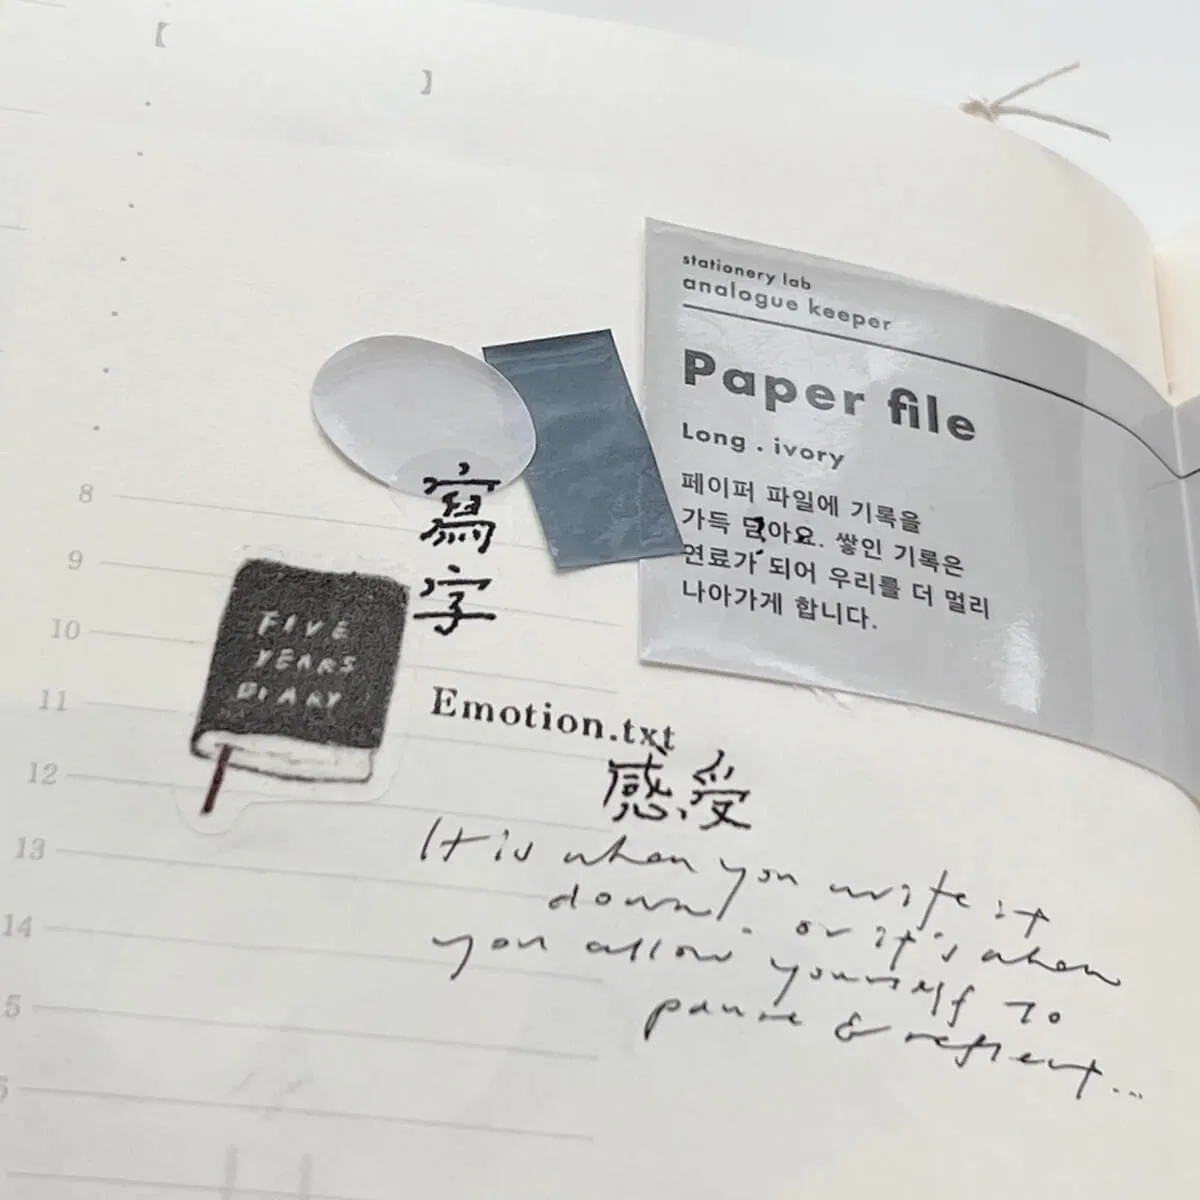 【
】
stationery lab
analogue keeper
Paper file
Long . ivory
페이퍼 파일에 기록을
가득 담아요. 쌓인 기록은
연료가 되어 우리를 더 멀리
나아가게 합니다.
寫
字
FIVE
YEARS
DIARY
Emotion.txt
感受
It is when you write it
down. or it's when
you allow yourself to
pause & reflect...
8
9
10
11
12
13
14